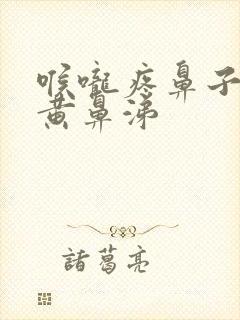 喉嚨疼鼻子
黃鼻涕
諸葛亮